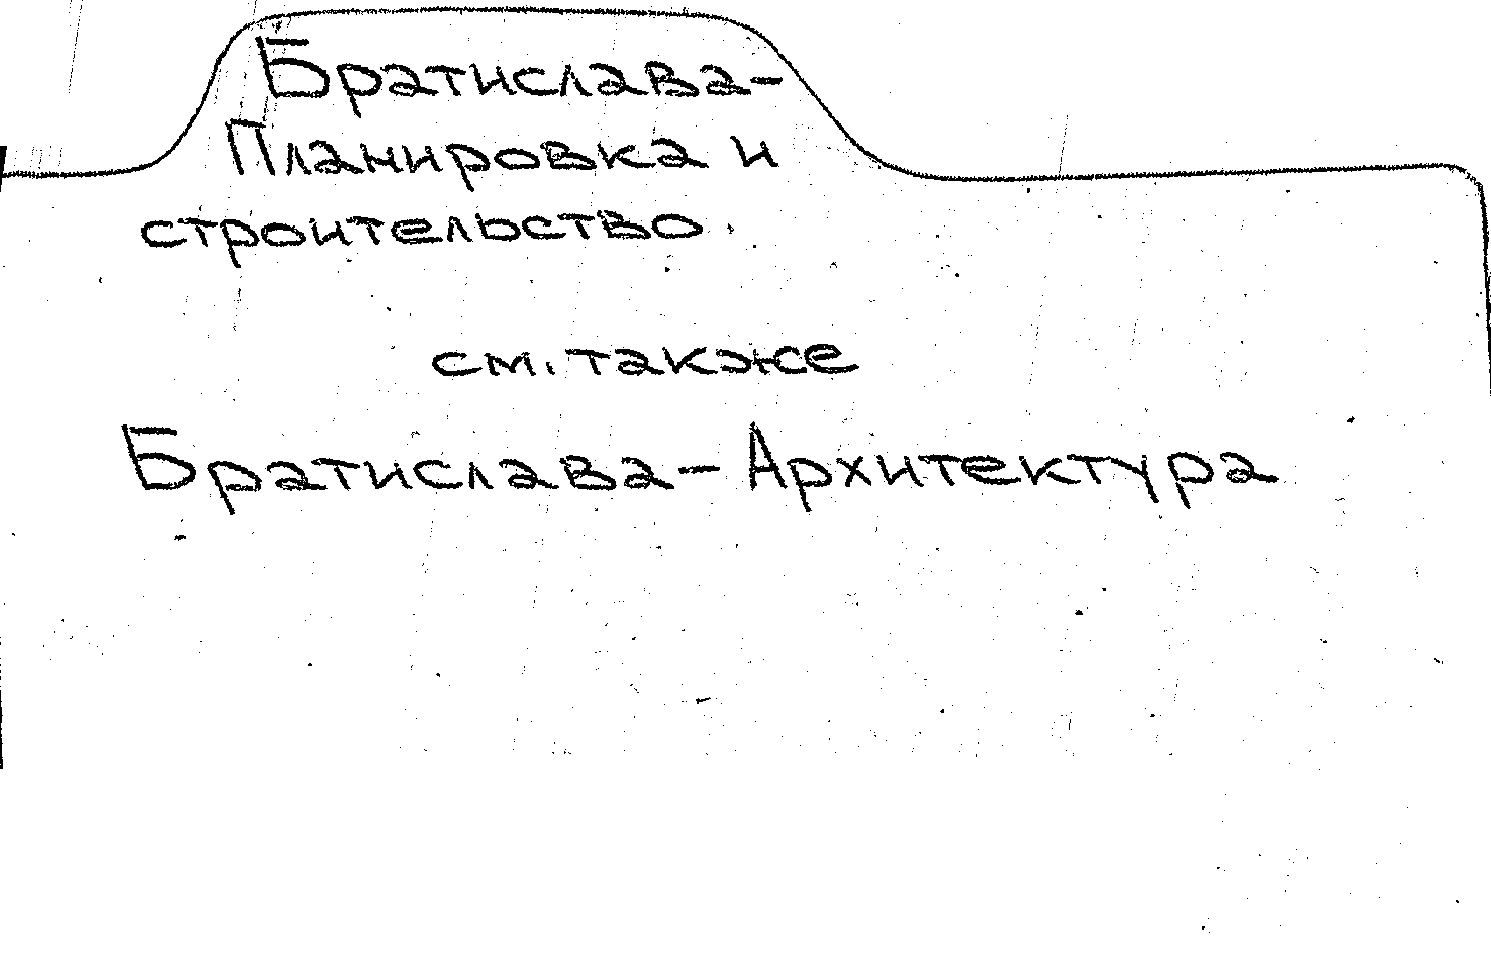 Братислава-
Планировка и
строительство.
см. также
Братислава-Архитектура